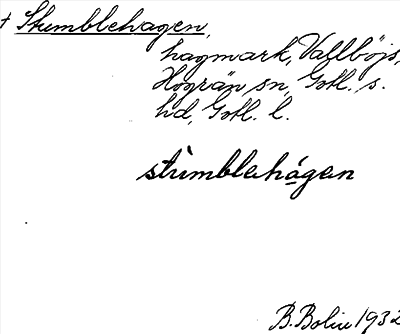 + Stumblehagen,
hagmark, Vallböjs,
Hogrän sn, Gotl. s.
hd, Gotl. l.
stùmblehágen
B. Bolin 1932